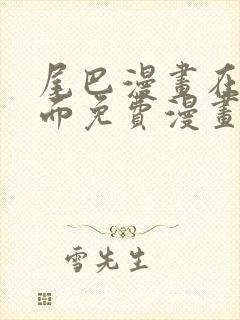 尾巴漫畫在
而免費漫畫
雪先生